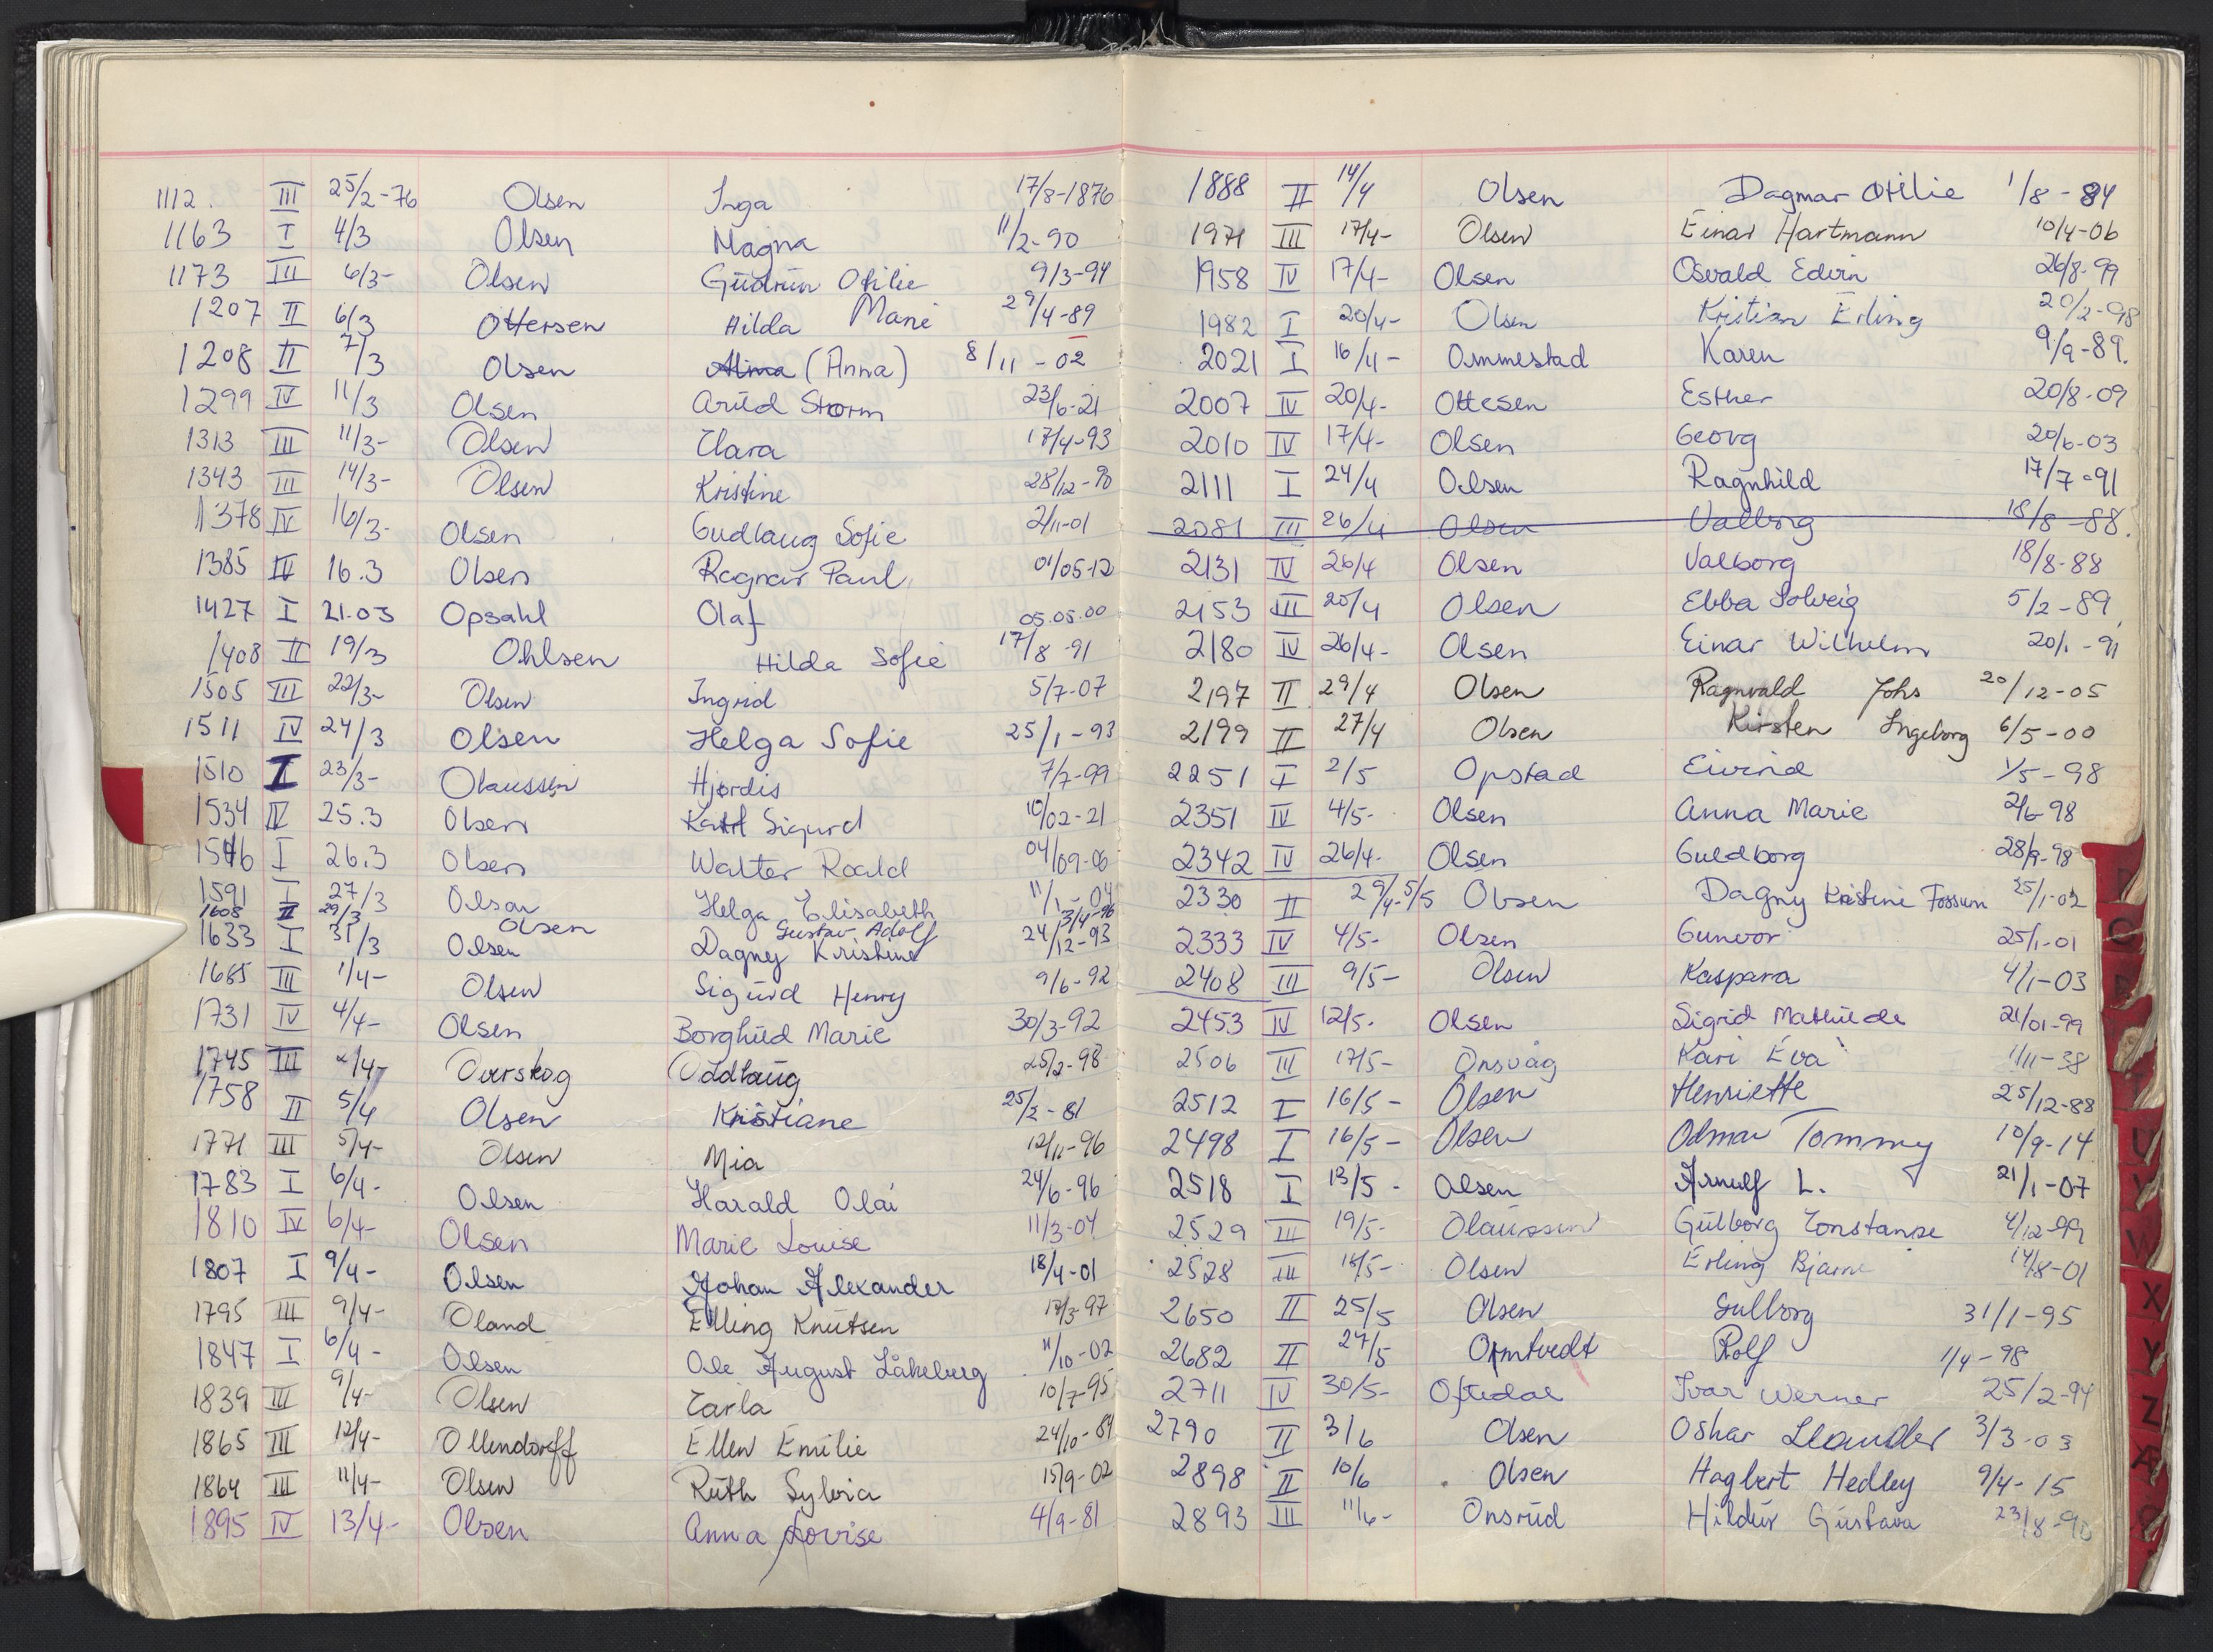 1112. III 25/2-76 Olsen Inga 17/8-1876
1163 I 4/3 Olsen Magna 11/2-90
1173 III 6/3- Olsen Gudrun Otilie 9/3-94
1207 II 6/3 Ottersen Hilda Marie 29/4-89
1208 II 7/3 Olsen Alma (Anna) 8/11-02
1299 IV 11/3 Olsen Arild Storm 23/6-21
1313 III 11/3- Olsen Clara 17/4-93
1343 III 14/3- Olsen Kristine 28/12-90
1378 IV 16/3- Olsen Gudlaug Sofie 2/11-01
1385 IV 16.3 Olsen Ragnar Paul 01/05-12
1427 I 21.03 Opsahl Olaf 05.05.00
1408 II 19/3 Ohlsen Hilda Sofie 17/8-91
1505 III 22/3- Olsen Ingrid 5/7-07
1511 IV 24/3 Olsen Helga Sofie 25/1-93
1510 I 23/3- Olaussen Hjørdis 7/7-99
1534 IV 25.3 Olsen Karl Sigurd 10/02-21
1546 I 26.3 Olsen Walter Roald 04/09-06
1591 I 27/3 Olsen Helga Elisabeth 11/1-04
1608 II 29/3 Olsen Gustav Adolf 3/4-96
1633 I 31/3 Olsen Dagny Kristine 24/12-93
1685 III 1/4- Olsen Sigurd Henry 9/6-92
1731 IV 4/4- Olsen Borghild Marie 30/3-92
1745 III 4/4- Overskog Oddlaug 25/2-98
1758 II 5/4 Olsen Kristiane 25/2-81
1771 III 5/4- Olsen Mia 12/11-96
1783 I 6/4- Olsen Harald Olai 24/6-96
1810 IV 6/4- Olsen Marie Louise 11/3-04
1807 I 9/4- Olsen Johan Alexander 18/4-01
1795 III 9/4- Oland Elling Knutsen 17/3-97
1847 I 6/4- Olsen Ole August Låkeberg 11/10-02
1839 III 9/4- Olsen Carla 10/7-95
1865 III 12/4- Ollendorff Ellen Emilie 24/10-84
1864 III 11/4- Olsen Ruth Sylvia 15/9-02
1895 IV 13/4- Olsen Anna Lovise 4/9-81
1888 II 14/4 Olsen Dagmar Otilie 1/8-84
1971 III 17/4- Olsen Einar Hartmann 10/4-06
1958 IV 17/4- Olsen Osvald Edvin 26/8-99
1982 I 20/4- Olsen Kristian Erling 20/2-98
2021 I 16/4- Ommestad Karen 9/9-89.
2007 IV 20/4- Ottesen Esther 20/8-09
2010 IV 17/4- Olsen Georg 20/6-03
2111 I 24/4 Olsen Ragnhild 17/7-91
2081 III 26/4 Olsen Valborg 18/8-88.
2131 IV 26/4 Olsen Valborg 18/8-88
2153 III 20/4 Olsen Ebba Solveig 5/2-89
2180 IV 26/4- Olsen Einar Wilhelm 20/1-91
2197 II 29/4 Olsen Ragnvald Johs 20/12-05
2199 II 27/4 Olsen Kirsten Ingeborg 6/5-00
2251 I 2/5 Opstad Eivind 1/5-98
2351 IV 4/5- Olsen Anna Marie 2/6-98
2342 IV 26/4- Olsen Guldborg 28/9-98
2330 II 29/4-5/5 Olsen Dagny Kristine Fossum 25/1-02
2333 IV 4/5- Olsen Gunvor 25/1-01
2408 III 9/5- Olsen Kaspara 4/1-03
2453 IV 12/5- Olsen Sigrid Mathilde 21/01-99
2506 III 17/5- Onsvåg Kari Eva 11/11-38
2512 I 16/5- Olsen Henriette 25/12-88
2498 I 16/5- Olsen Odmar Tommy 10/9-14
2518 I 13/5- Olsen Arnulf L. 21/1-07
2529 III 19/5- Olaussen Gulborg Constanse 4/12-99
2528 III 18/5- Olsen Erling Bjarne 14/8-01
2650 II 25/5 Olsen Gulborg 31/1-95
2682 II 27/5 Omtvedt Rolf 1/4-98
2711 IV 30/5- Oftedal Ivar Werner 25/2-94
2790 II 3/6 Olsen Oskar Leander 3/3-03
2898 II 10/6 Olsen Hagbert Hedley 9/4-15
2893 III 11/6- Onsrud Hildur Gustava 23/8-90
X
Y
Z